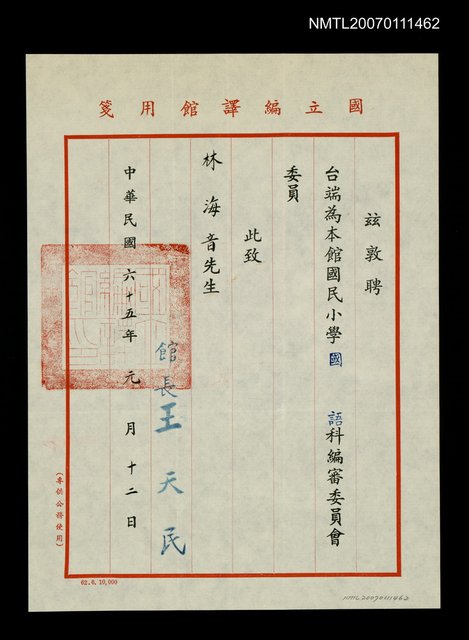 NMTL20070111462
國立編譯館用箋
茲敦聘
台端為本館國民小學國語科編審委員會
委員
此致
林海音先生
館長王天民
中華民國六十五年元月十二日
(專供公務使用)
62.6.10,000
NMTL20070111462